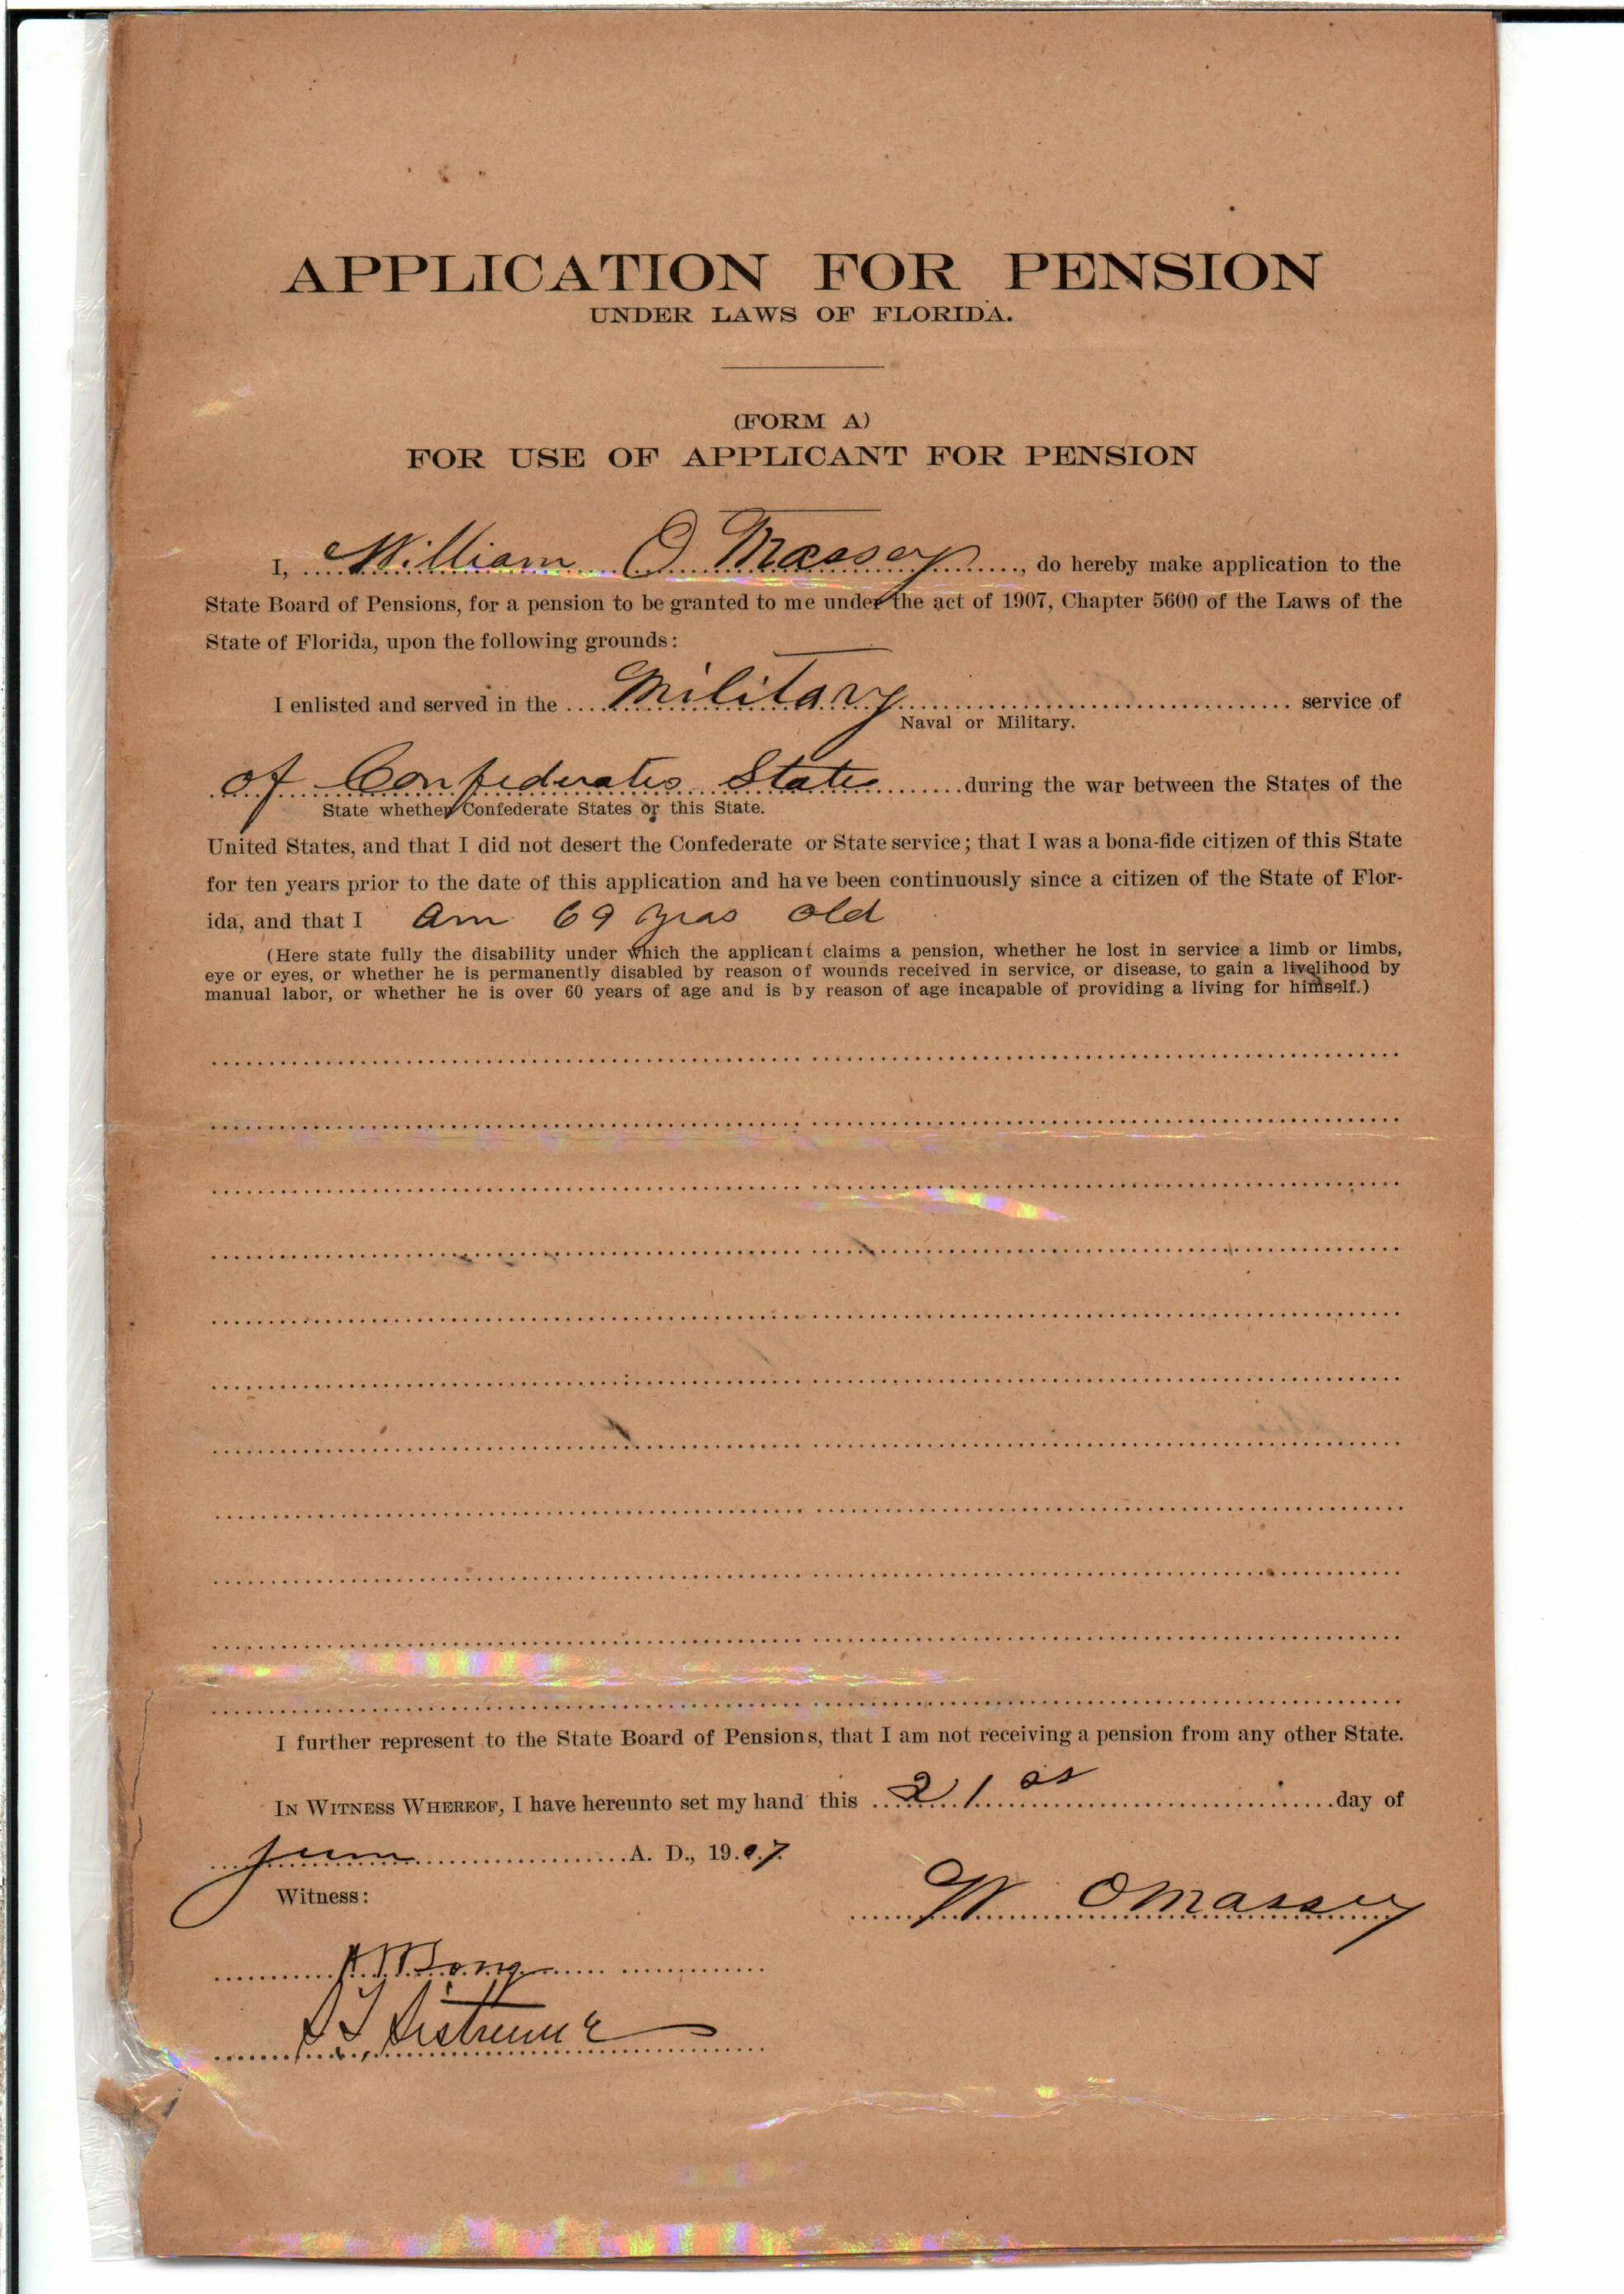 APPLICATION FOR PENSION
UNDER LAWS OF FLORIDA.
(FORM A)
FOR USE OF APPLICANT FOR PENSION
I, William O Massey, do hereby make application to the
State Board of Pensions, for a pension to be granted to me under the act of 1907, Chapter 5600 of the Laws of the
State of Florida, upon the following grounds:
I enlisted and served in the Military service of
Naval or Military.
of Confederates States during the war between the States of the
State whether Confederate States or this State.
United States, and that I did not desert the Confederate or State service; that I was a bona-fide citizen of this State
for ten years prior to the date of this application and have been continuously since a citizen of the State of Flor-
ida, and that I am 69 years old
(Here state fully the disability under which the applicant claims a pension, whether he lost in service a limb or limbs,
eye or eyes, or whether he is permanently disabled by reason of wounds received in service, or disease, to gain a livelihood by
manual labor, or whether he is over 60 years of age and is by reason of age incapable of providing a living for himself.)
I further represent to the State Board of Pensions, that I am not receiving a pension from any other State.
IN WITNESS WHEREOF, I have hereunto set my hand this 21 day of
June A. D., 1907.
Witness:
W O Massey